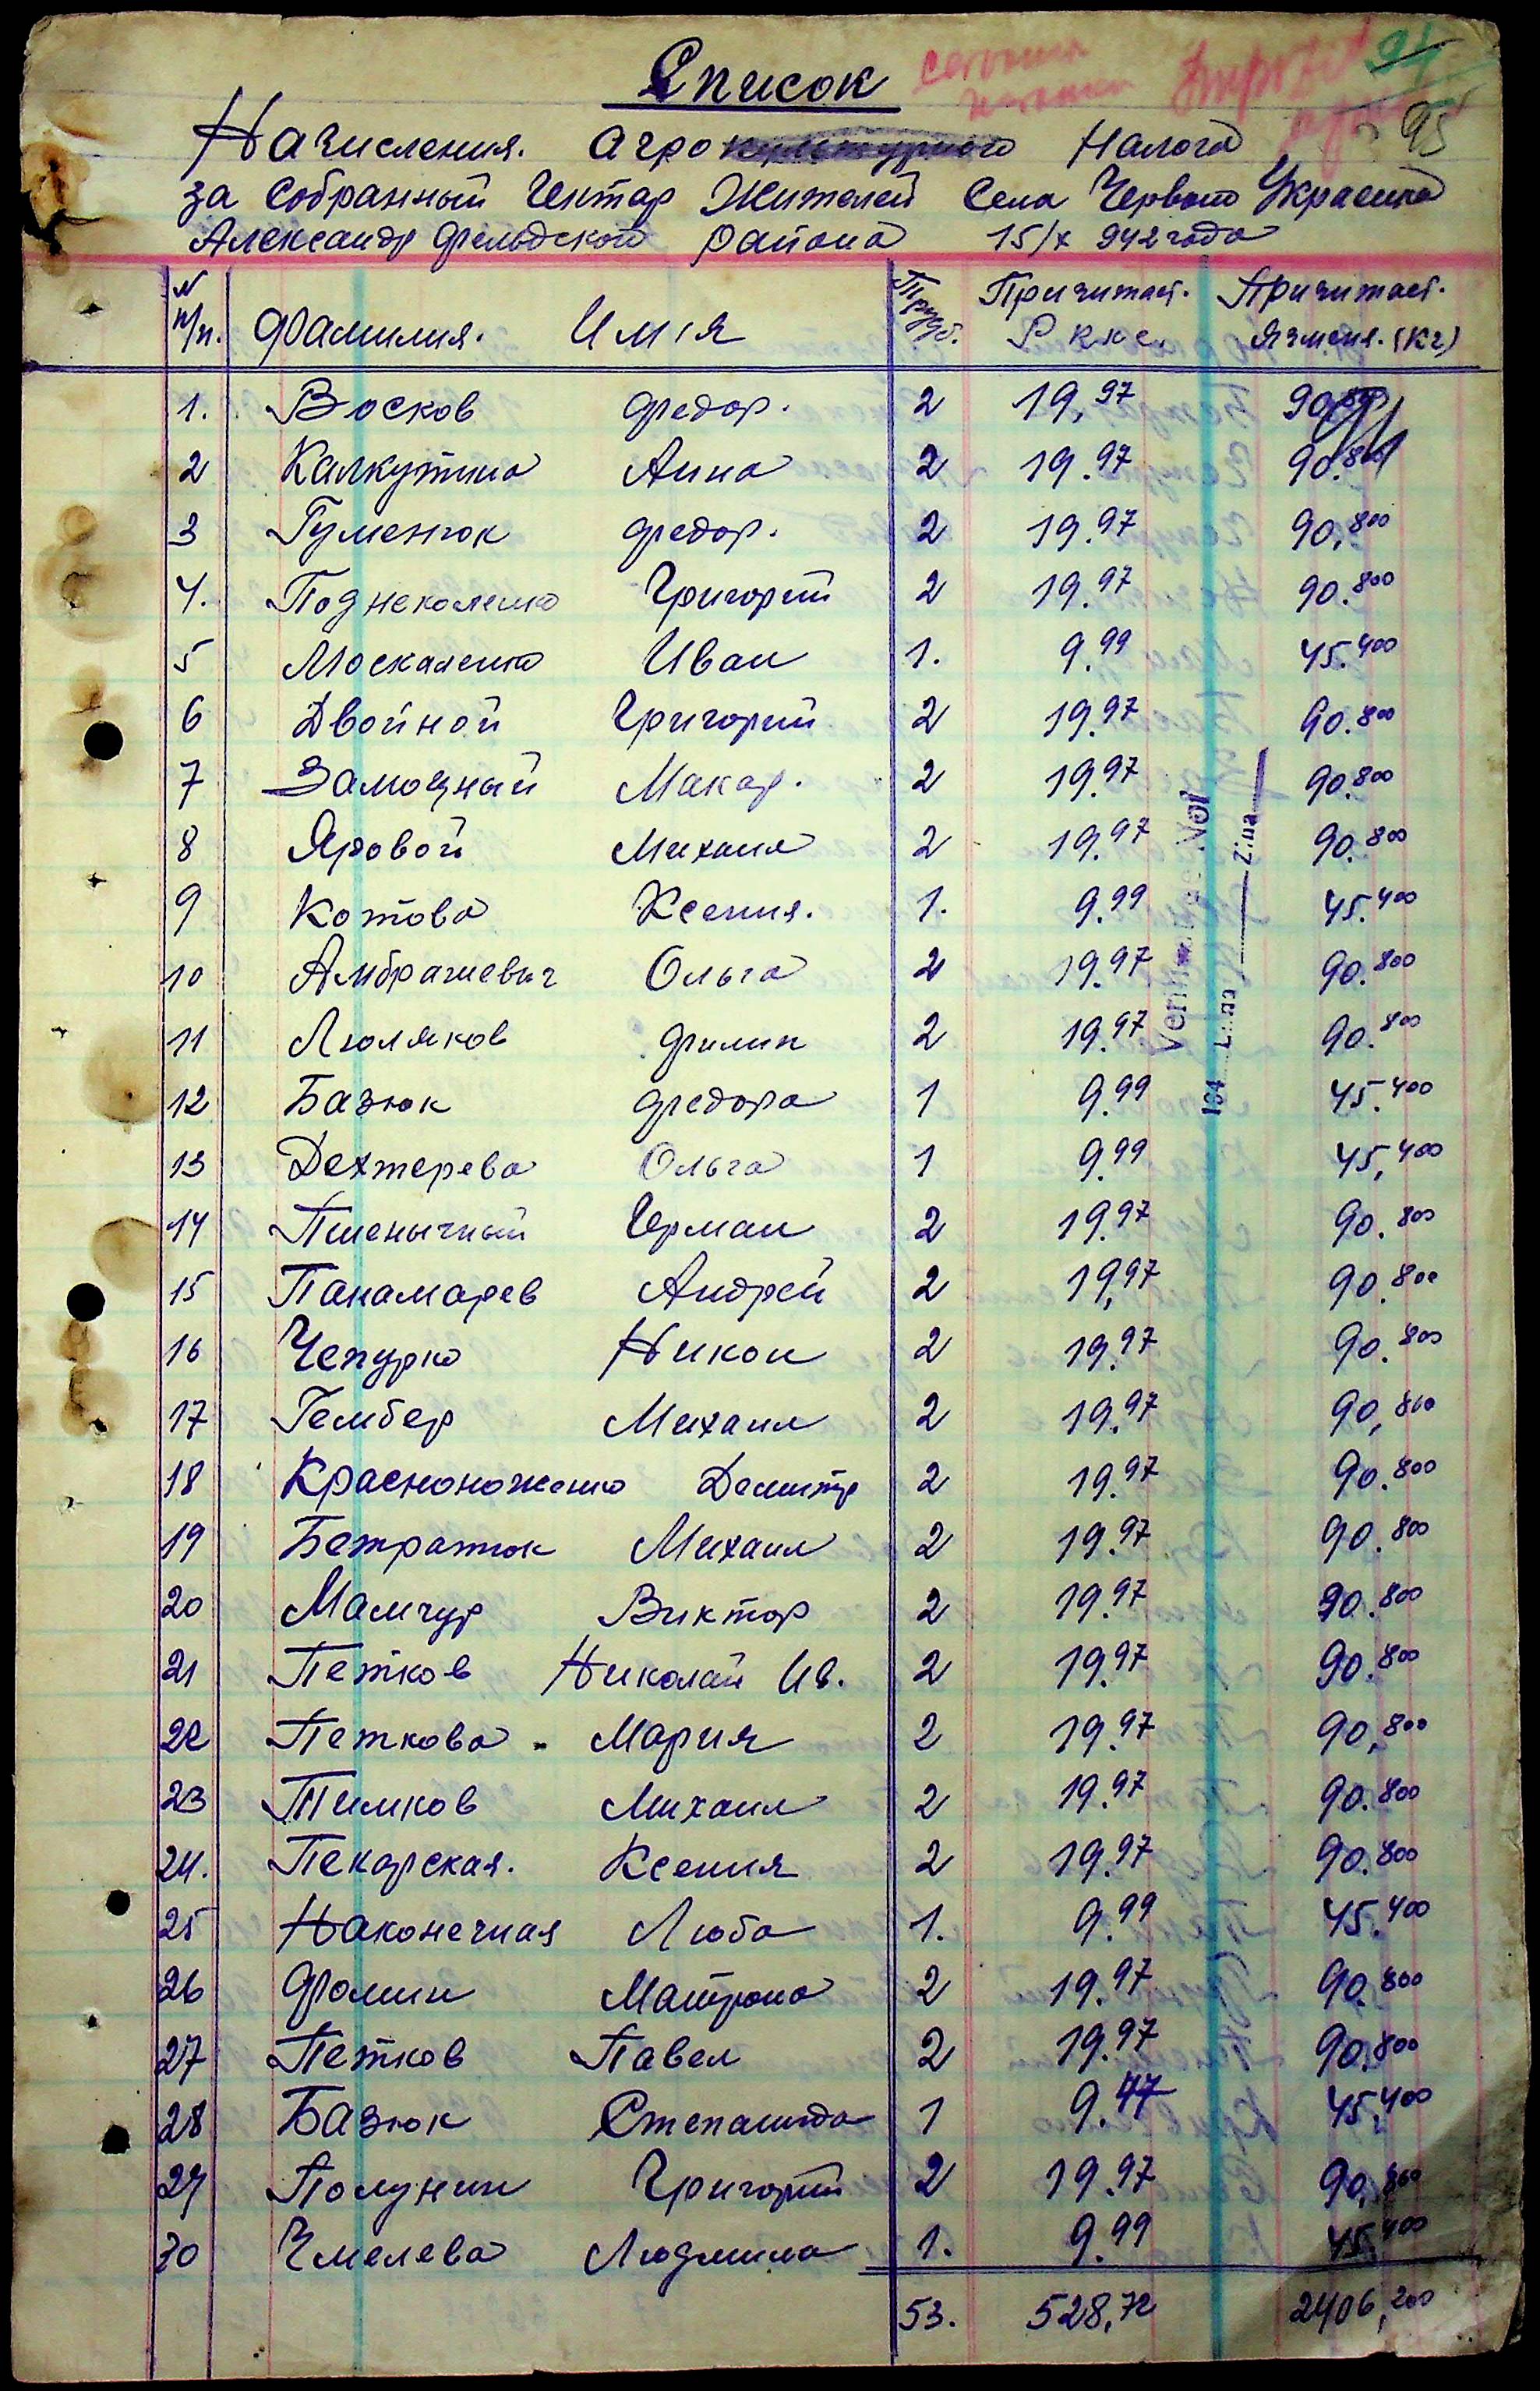 Список
91
95
Начисления. Агрокультурного Налога
за Собранный Гектар Жителей Села Червоно Украинка
Александрфельдской района 15/X 942 года
N п/п. Фамилия. Имiя Трудсп. Причитает. Р ккс. Причитает. Язменя. (Кг)
1. Восков Федор. 2 19,97 90,800
2 Калкутина Анна 2 19.97 90.800
3 Гуменюк Федор. 2 19.97 90,800
4. Поднеколенко Григорий 2 19.97 90.800
5 Москаленко Иван 1. 9.99 45.400
6 Двойной Григорий 2 19.97 90.800
7 Замоцный Макар. 2 19.97 90.800
8 Яровой Михаил 2 19.97 90.800
9 Котова Ксения. 1. 9.99 45.400
10 Амбрашевич Ольга 2 19.97 90.800
11 Люляков Филип 2 19.97 90.800
12 Базюк Федора 1 9.99 45.400
13 Дехтерева Ольга 1 9.99 45,400
14 Пшеничный Герман 2 19.97 90.800
15 Панамарев Андрей 2 19,97 90.800
16 Чепурко Никон 2 19.97 90.800
17 Гембер Михаил 2 19.97 90,800
18 Красноноженко Демитр 2 19.97 90.800
19 Бетратюк Михаил 2 19.97 90.800
20 Мамчур Виктор 2 19.97 90.800
21 Петков Николай Ив. 2 19.97 90.800
22 Петкова Мария 2 19.97 90,800
23 Тимков Михаил 2 19.97 90.800
24. Пекарская. Ксения 2 19.97 90.800
25 Наконечная Люба 1. 9.99 45.400
26 Фомин Матрона 2 19.97 90.800
27 Петков Павел 2 19.97 90.800
28 Базюк Степанида 1 9.47 45,400
29 Полунин Григорий 2 19.97 90,800
30 Чмелева Людмила 1. 9.99 45.400
53. 528,72 2406,200
194 Luna Ziua